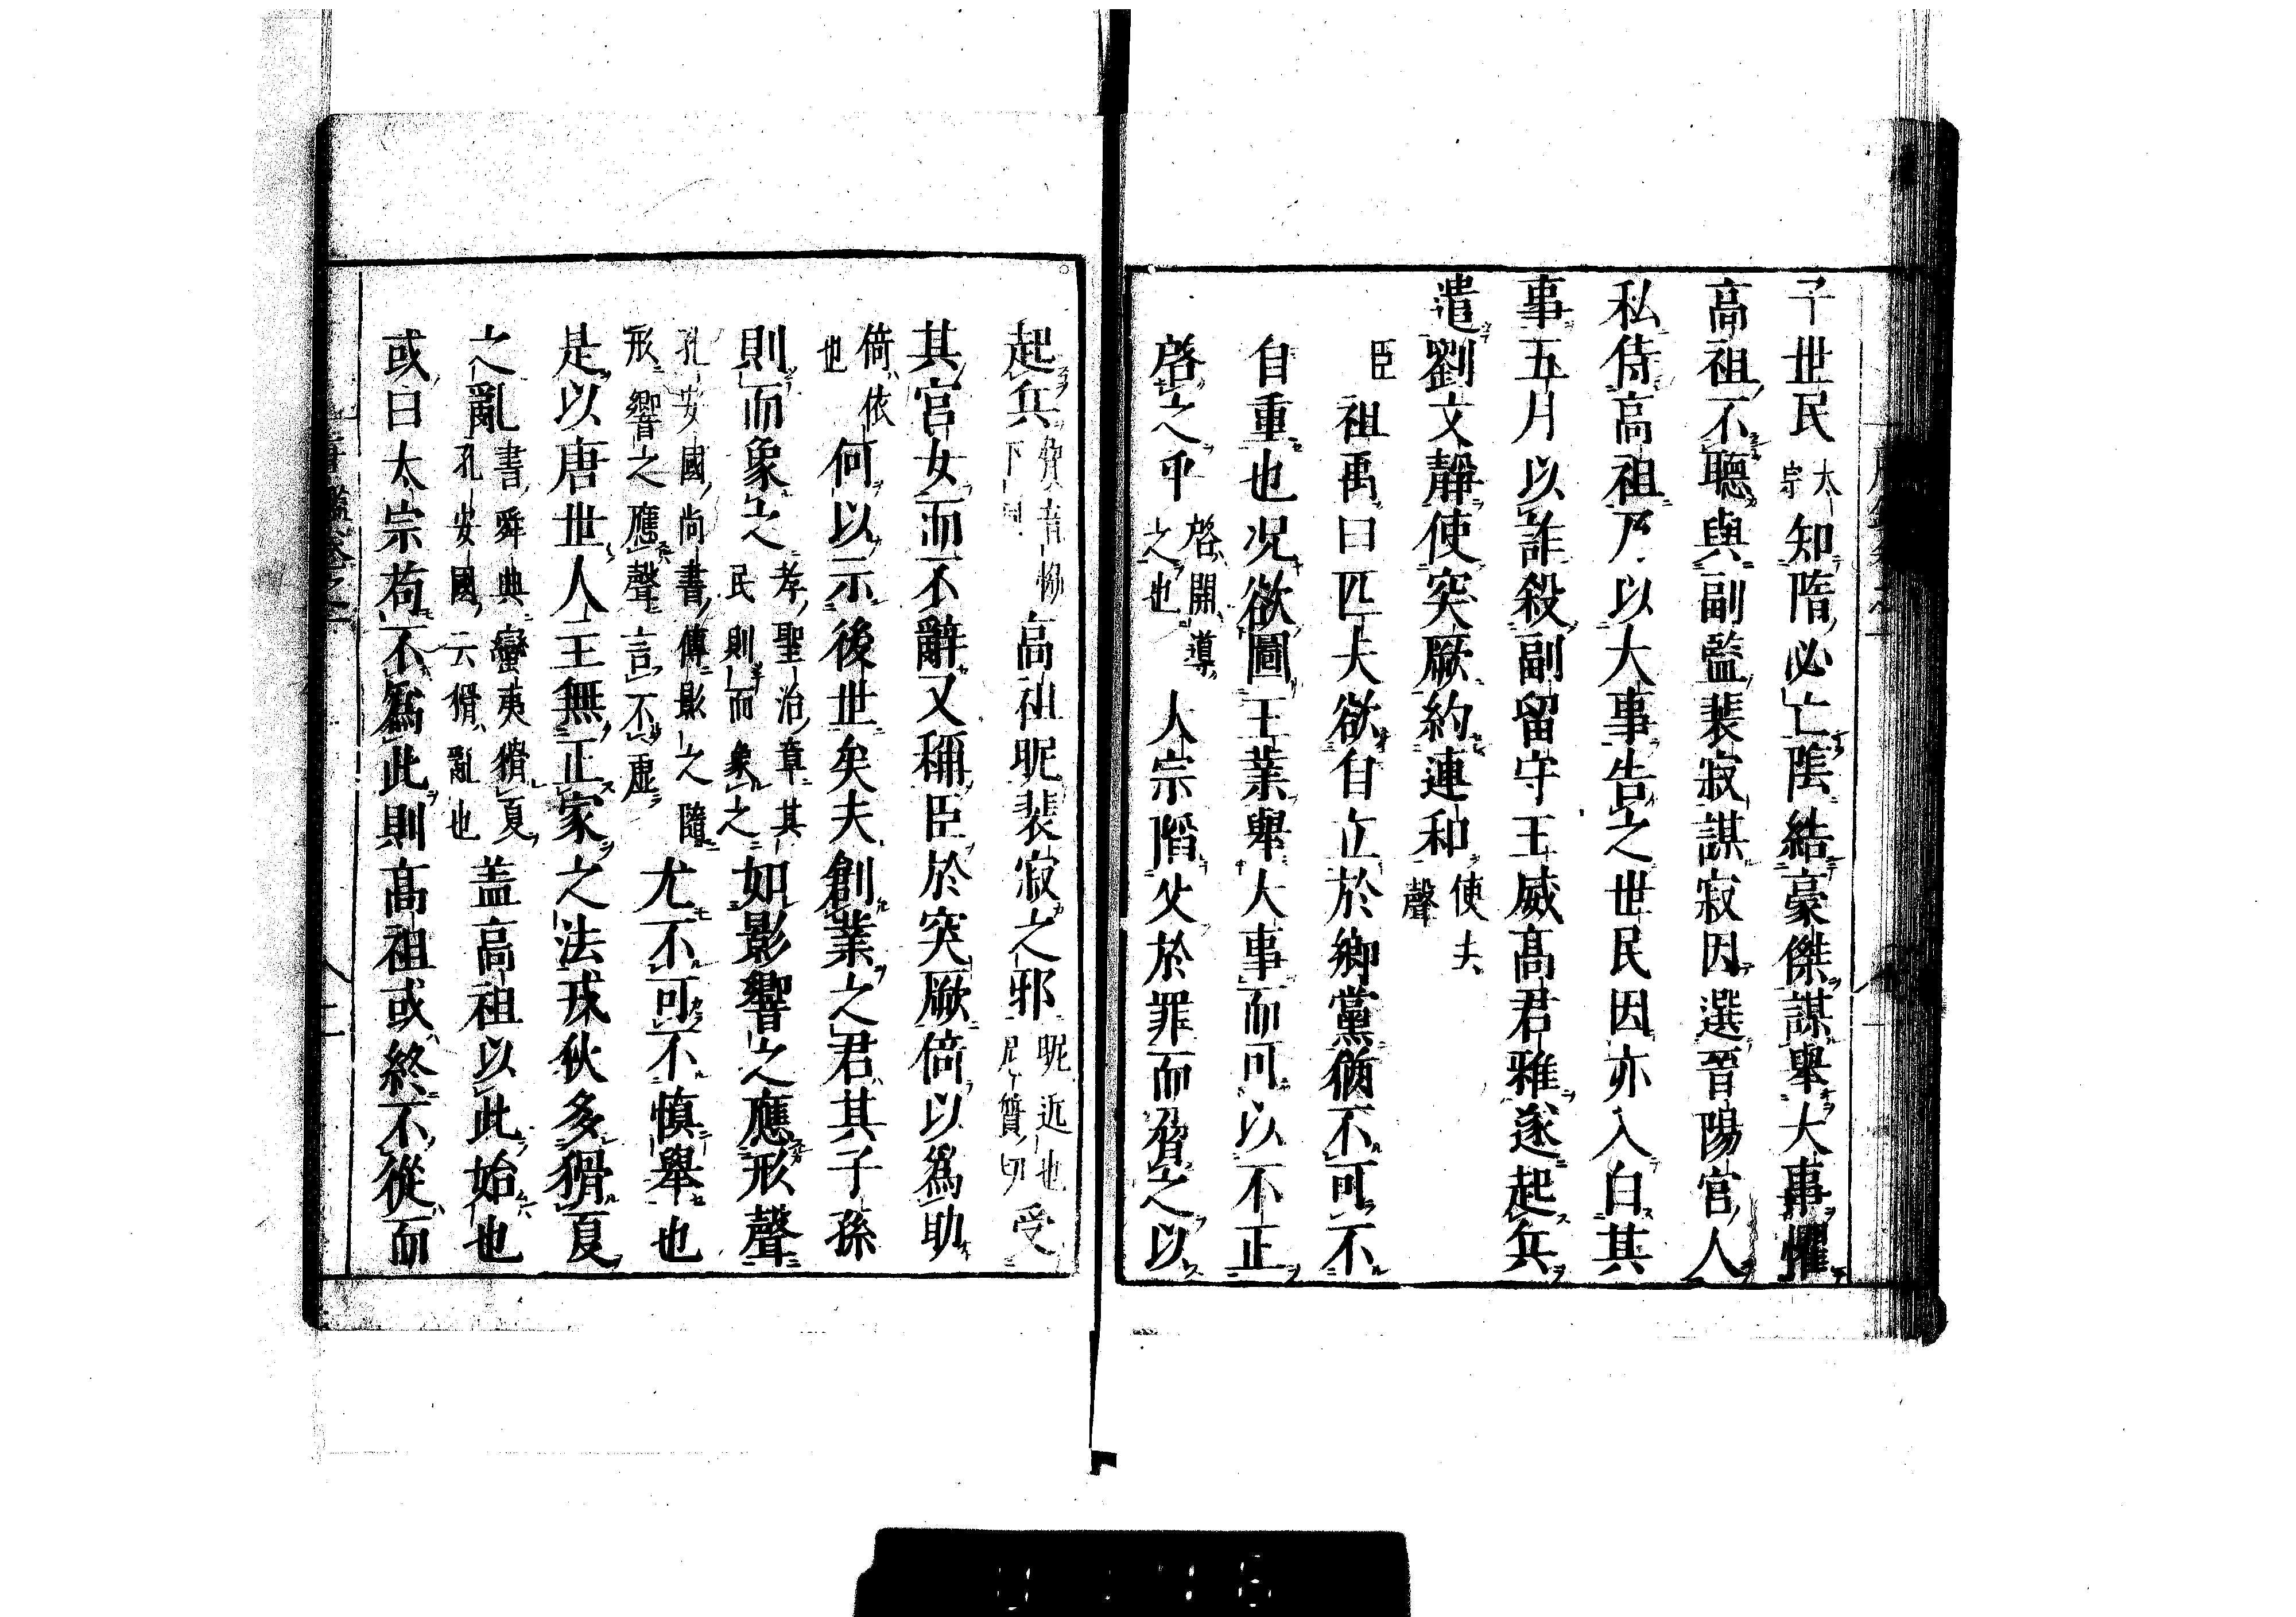 子世民太宗知隋必亡陰結豪傑謀舉大事懼
高祖不聽與副監裴寂謀寂因選晉陽宮人
私侍高祖乃以大事告之世民因亦入白其
事五月以詐殺副留守王威高君雅遂起兵
遣劉文靜使突厥約連和使夫聲
臣祖禹曰匹夫欲自立於鄉黨猶不可不
自重也况欲圖王業舉大事而可以不正
啓之乎啓開導之也太宗陷父於罪而脅之以
起兵下高祖昵裴寂之邪昵近也尼質切受
其宮女而不辭又稱臣於突厥倚以爲助
倚依也何以示後世矣夫創業之君其子孫
則而象之孝聖治章其民則而象之如影響之應形聲
孔安國尚書傳影之隨形響之應聲言不虛尤不可不慎舉也
是以唐世人主無正家之法戎狄多猾夏
之亂書舜典蠻夷猾夏孔安國云猾亂也盖高祖以此始也
或曰太宗苟不爲此則高祖或終不從而